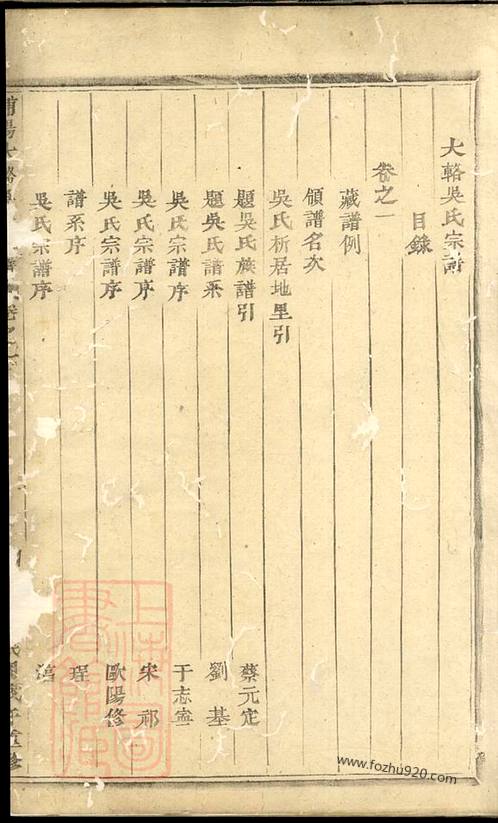 大輅吳氏宗譜
目錄
卷之一
藏譜例
領譜名次
吳氏析居地里引
題吳氏族譜引 蔡元定
題吳氏譜系 劉基
吳氏宗譜序 于志寧
吳氏宗譜序 宋祁
吳氏宗譜序 歐陽修
譜系序 珵
吳氏宗譜序
上海圖書館藏
www.fozhu920.com